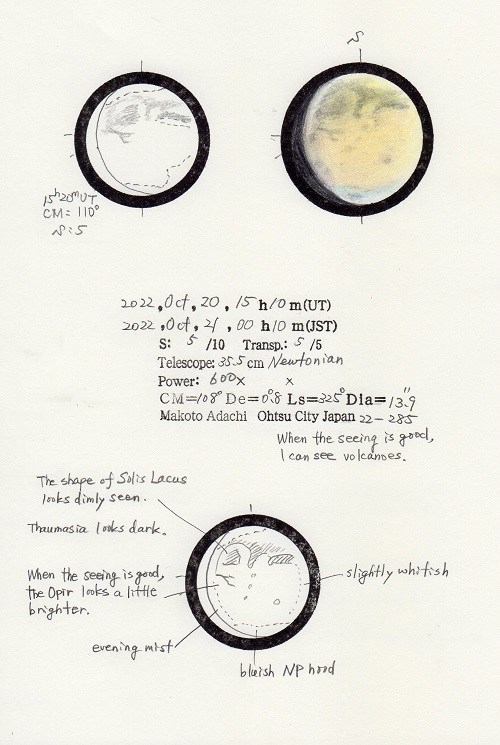 S
15h20mUT
CM=110°
S:5
2022,Oct,20,15h10m(UT)
2022,Oct,21,00h10m(JST)
S: 5 /10 Transp.: 5 /5
Telescope: 35.5 cm Newtonian
Power: 600× ×
CM=108° De=0°.8 Ls=325° Dia=13".9
Makoto Adachi Ohtsu City Japan 22-285
When the seeing is good,
I can see volcanoes.
The shape of Solis Lacus
looks dimly seen.
Thaumasia looks dark.
When the seeing is good,
the Opir looks a little
brighter.
slightly whitish
evening mist
bluish NP hood